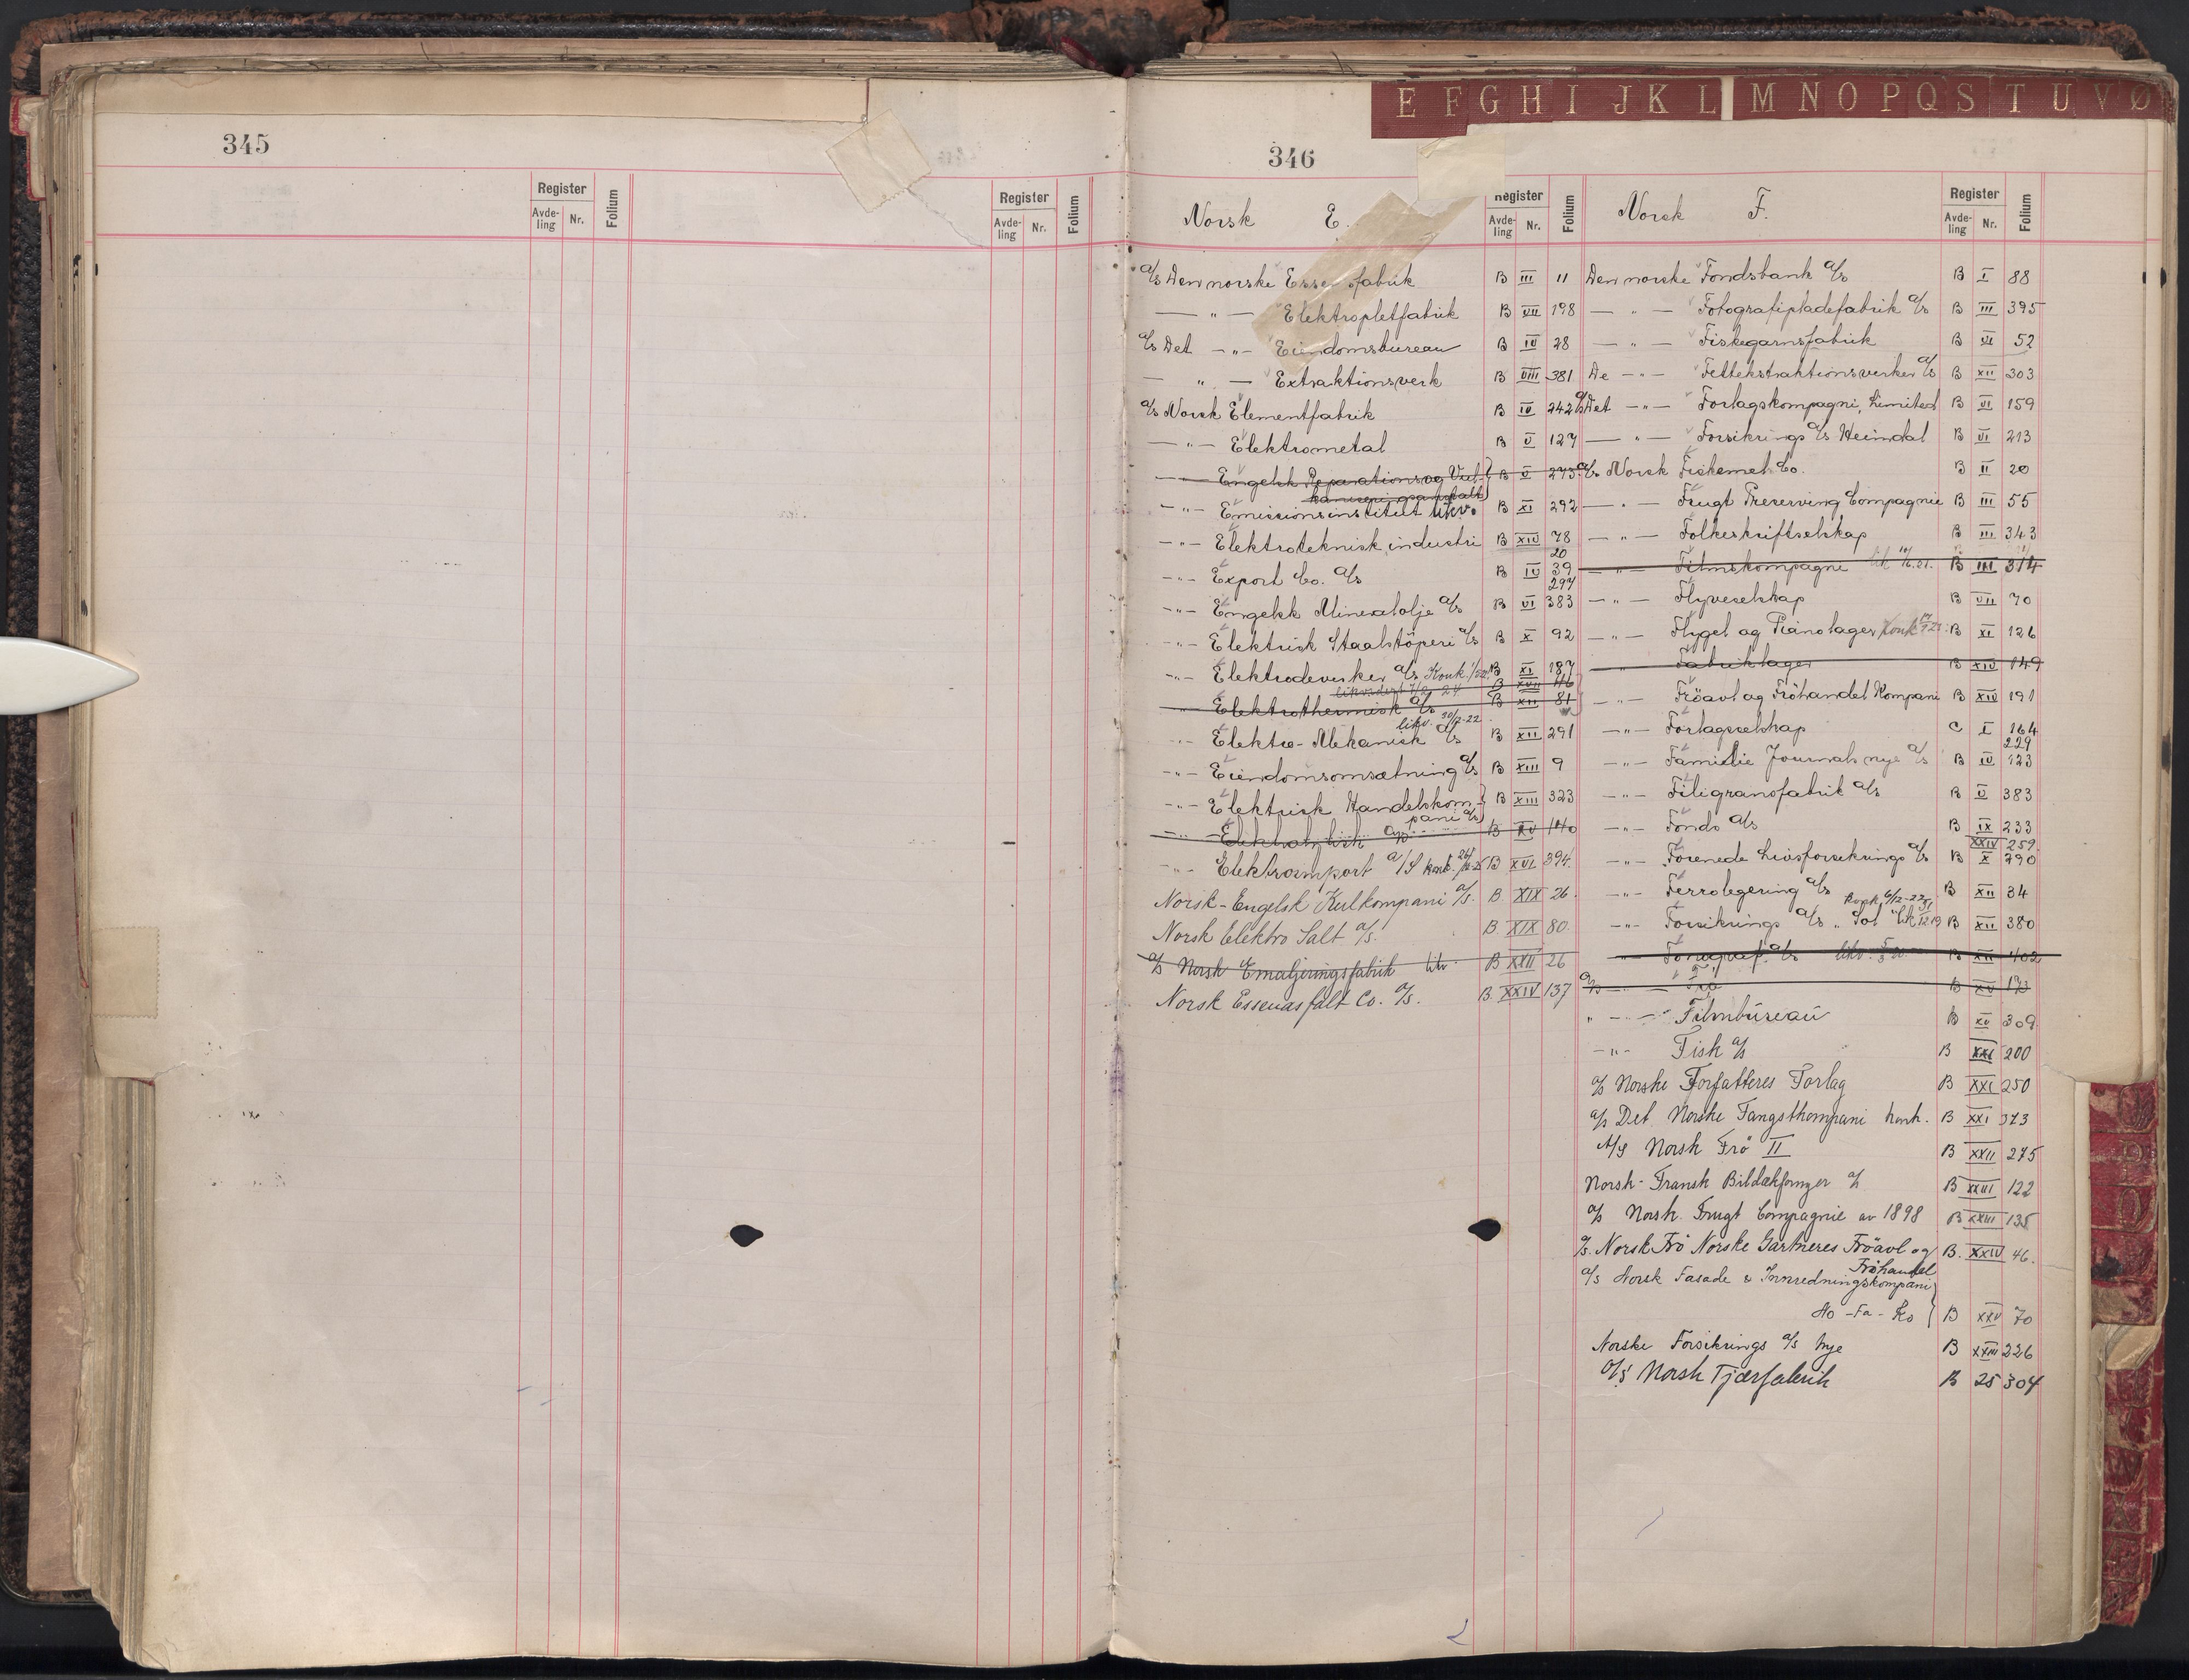 345
Register
Avde-
ling
Nr.
Folium
Register
Avde-
ling
Nr.
Folium
E F G H I J K L M N O P Q S T U V Ø
346
Norsk E.
Register
Avde-
ling
Nr.
Folium
a/s Den norske Essen fabrik B III 11
— " — Elektropletfabrik B VII 198
a/s Det — " — Eiendomsbureau B IV 28
— " — Extraktionsverk B VIII 381
a/s Norsk Elementfabrik B IV 242
— " — Elektrometal B V 127
— " — Engelsk Reparations og Vul- B V 273
kaniseringsanstalt
— " — Emissionsinstitut likv. B XI 292
— " — Elektroteknisk industri B XIV 78
20
— " — Export Co. a/s B IV 39
297
— " — Engelsk Mineralolje a/s B VI 383
— " — Elektrisk Staalstöperi a/s B X 92
— " — Elektrodeverker a/s Konk. B XI 187
likvidert 7/2 24 B XVII 46
" Elektrothermisk a/s B XII 81
likv. 30/12-22
— " — Elektro-Mekanisk a/s B XII 291
— " — Eiendomsomsætning a/s B XIII 9
— " — Elektrisk Handelskom- B XIII 323
pani a/s
— " — B XV 140
— " — Elektroimport a/S konk. B XVI 394
Norsk-Engelsk Kulkompani a/s. B. XIX 26.
Norsk Elektro Salt a/s. B. XIX 80.
a/s Norsk Emaljeringsfabrik likv. B XXII 26
Norsk Essenasfalt Co. a/s. B. XXIV 137
Norsk F.
Register
Avde-
ling
Nr.
Folium
Den norske Fondsbank a/s B I 88
— " — Fotografipladefabrik a/s B III 395
— " — Fiskegarnsfabrik B VI 52
De — " — Fettekstraktionsverker a/s B XII 303
a/s Det — " — Forlagskompagni, Limited B VI 159
— " — Forsikrings a/s Heimdal B VI 213
a/s Norsk Fiskemel Co. B II 20
— " — Frugt Preserving Compagnie B III 55
— " — Folkeskriftselskap B III 343
— " — Filmskompagni lik B III 314
— " — Flyveselskap B VII 70
— " — Flygel og Pianolager konk B XI 126
" Fabriklager B XIV 149
— " — Fröavl og Fröhandel Kompani B XIV 191
— " — Forlagsselskap C I 164
229
— " — Familie Journals nye a/s B IV 123
— " — Filigransfabrik a/s B V 383
— " — Fonds a/s B IX 233
XXIV 259
— " — Forenede Livsforsikrings a/s B X 290
— " — Ferrolegering a/s B XII 34
Konk. 6/12-27
— " — Forsikrings a/s "Sol" B XII 380
" a/s likv. B XII 402
a/s — " — Frö B XV 173
" — " — Filmbureau B XV 309
— " — Fisk a/s B XXI 200
a/s Norske Forfatteres Forlag B XXI 250
a/s Det Norske Fangstkompani konk. B XXI 373
A/S Norsk Frö II B XXII 275
Norsk-Fransk Bildækfornyer a/s B XXIII 122
a/s Norsk Frugt Compagnie av 1898 B XXIII 135
a/s. Norsk Frö Norske Gartneres Fröavl og B. XXIV 46.
Fröhandel
a/s Norsk Fasade & Innredningskompani
No-Fa-Ko B XXV 70
Norske Forsikrings a/s Nye B XXIII 226
A/S Norsk Tjærfabrik B 25 304